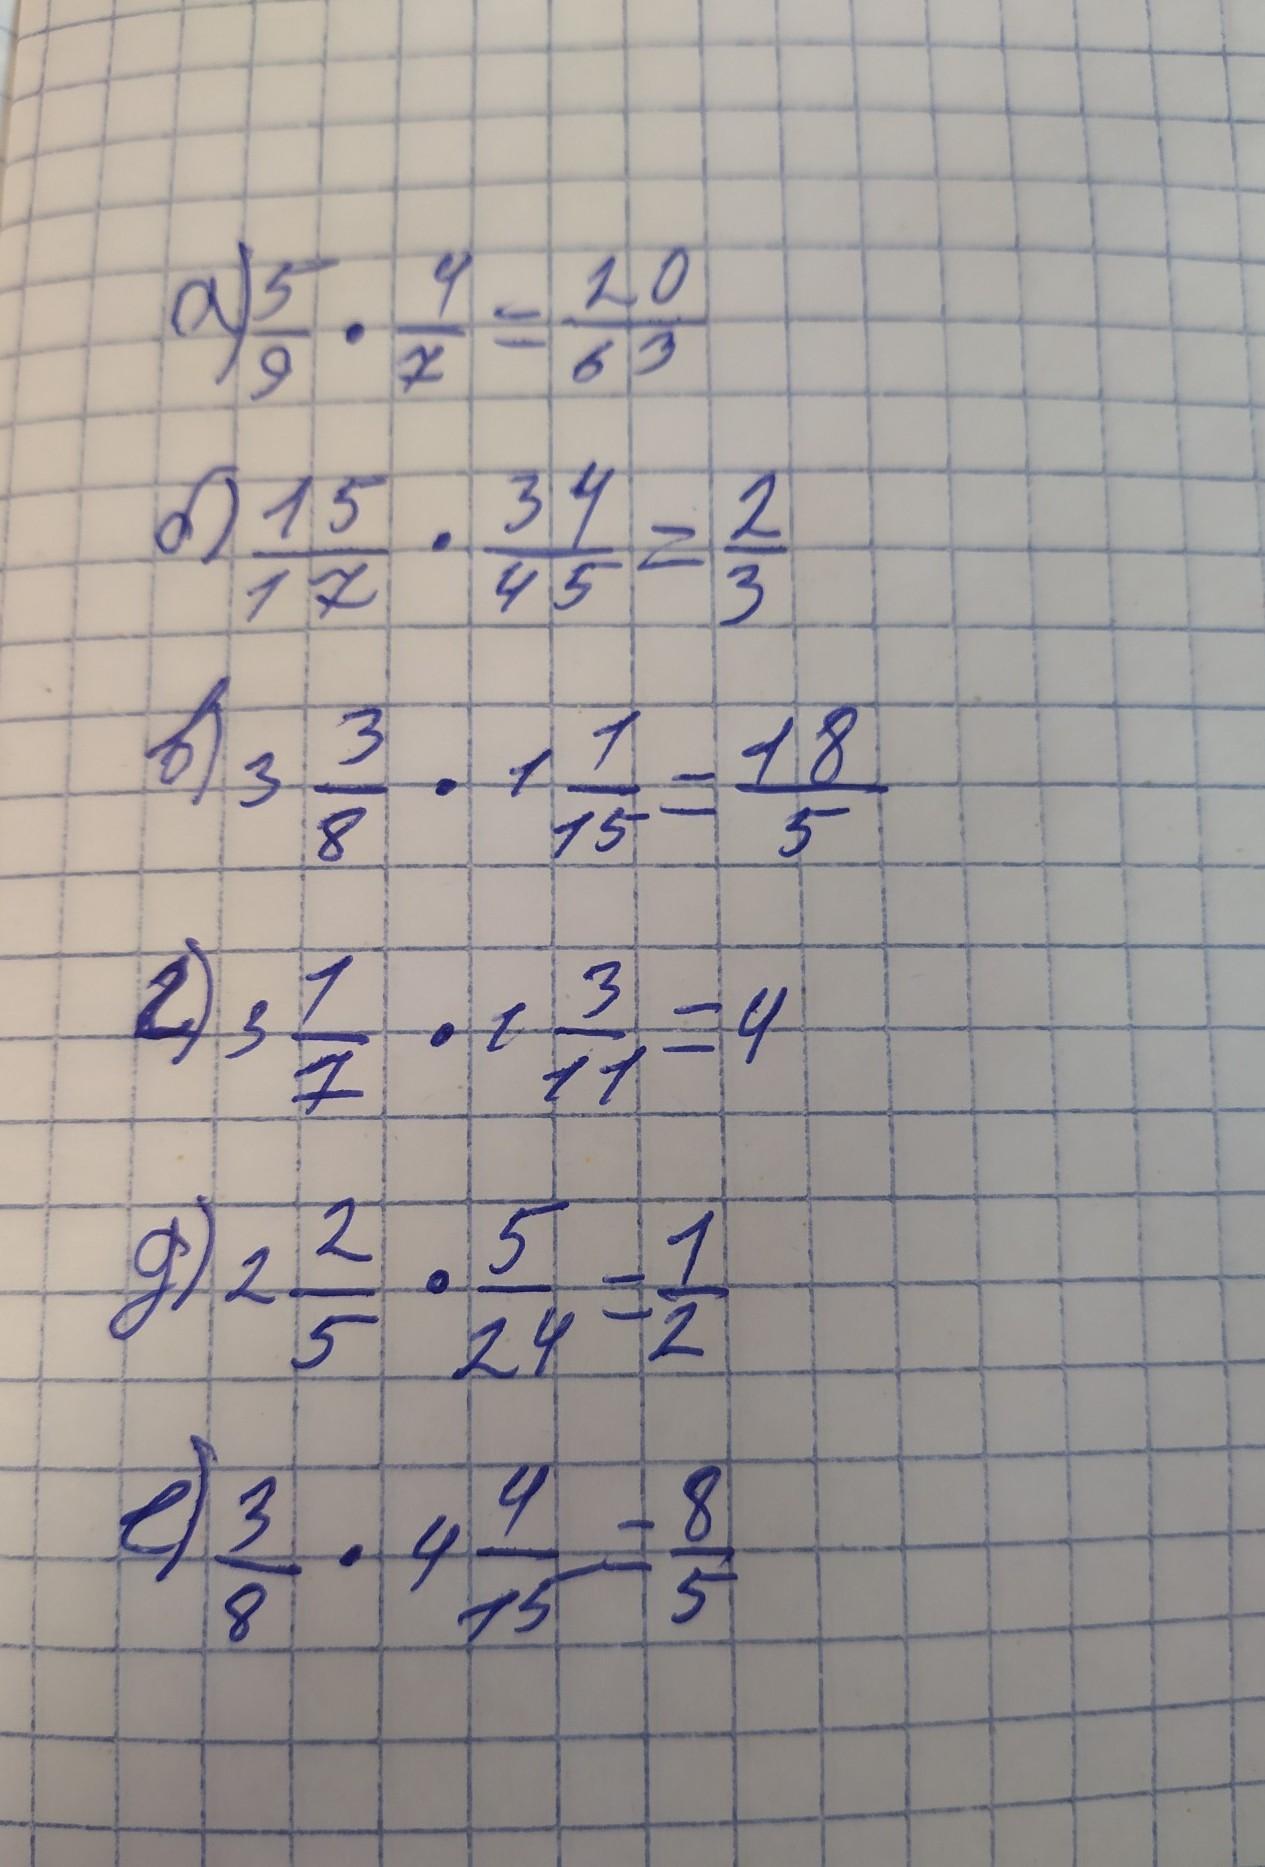 а) 5/9 · 4/7 = 20/63
б) 15/17 · 34/45 = 2/3
в) 3 3/8 · 1 1/15 = 18/5
г) 3 1/7 · 1 3/11 = 4
д) 2 2/5 · 5/24 = 1/2
е) 3/8 · 4 4/15 = 8/5